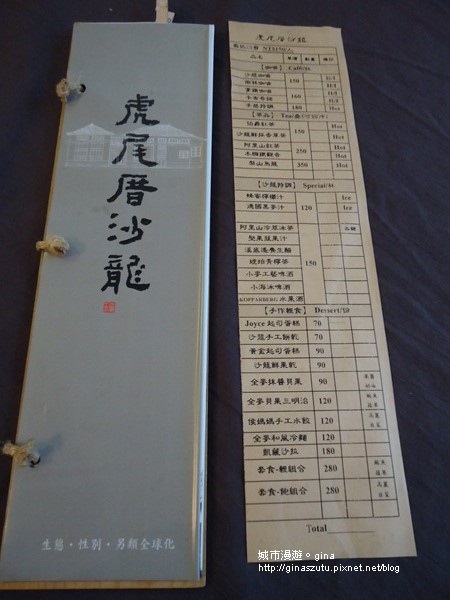 虎尾厝沙龍
生態・性別・另類全球化
虎尾厝沙龍
品名 單價 數量 備註
【咖啡】 Café/份
沙龍咖啡 150 H/I
H/I
160 H/I
卡布奇諾 H/I
180 Hot
【茶品】 Tea/壺(可回沖)
伯爵紅茶 150 Hot
沙龍鮮採香草茶 Hot
阿里山紅茶 250 Hot
Hot
梨山烏龍 350 Hot
【沙龍特調】 Special/杯
蜂蜜檸檬汁 120 Ice
通國黑麥汁 Ice
阿里山冷萃冰茶
堅果蔬果汁
琥珀青檸茶 150
小麥工藝啤酒
小海冰啤酒
KOPPARBERG 水果酒
【手作輕食】 Dessert/份
Joyce 起司蛋糕 70
沙龍手工餅乾 70
黃金起司蛋糕 90
沙龍鮮果乾 90
全麥抹醬貝果 90
全麥貝果三明治 120
侯媽媽手工水餃 120
全麥和風冷麵 120
凱薩沙拉 180
套食-輕組合 280
套食-飽組合 280
Total
城市漫遊。gina
http://ginaszutu.pixnet.net/blog